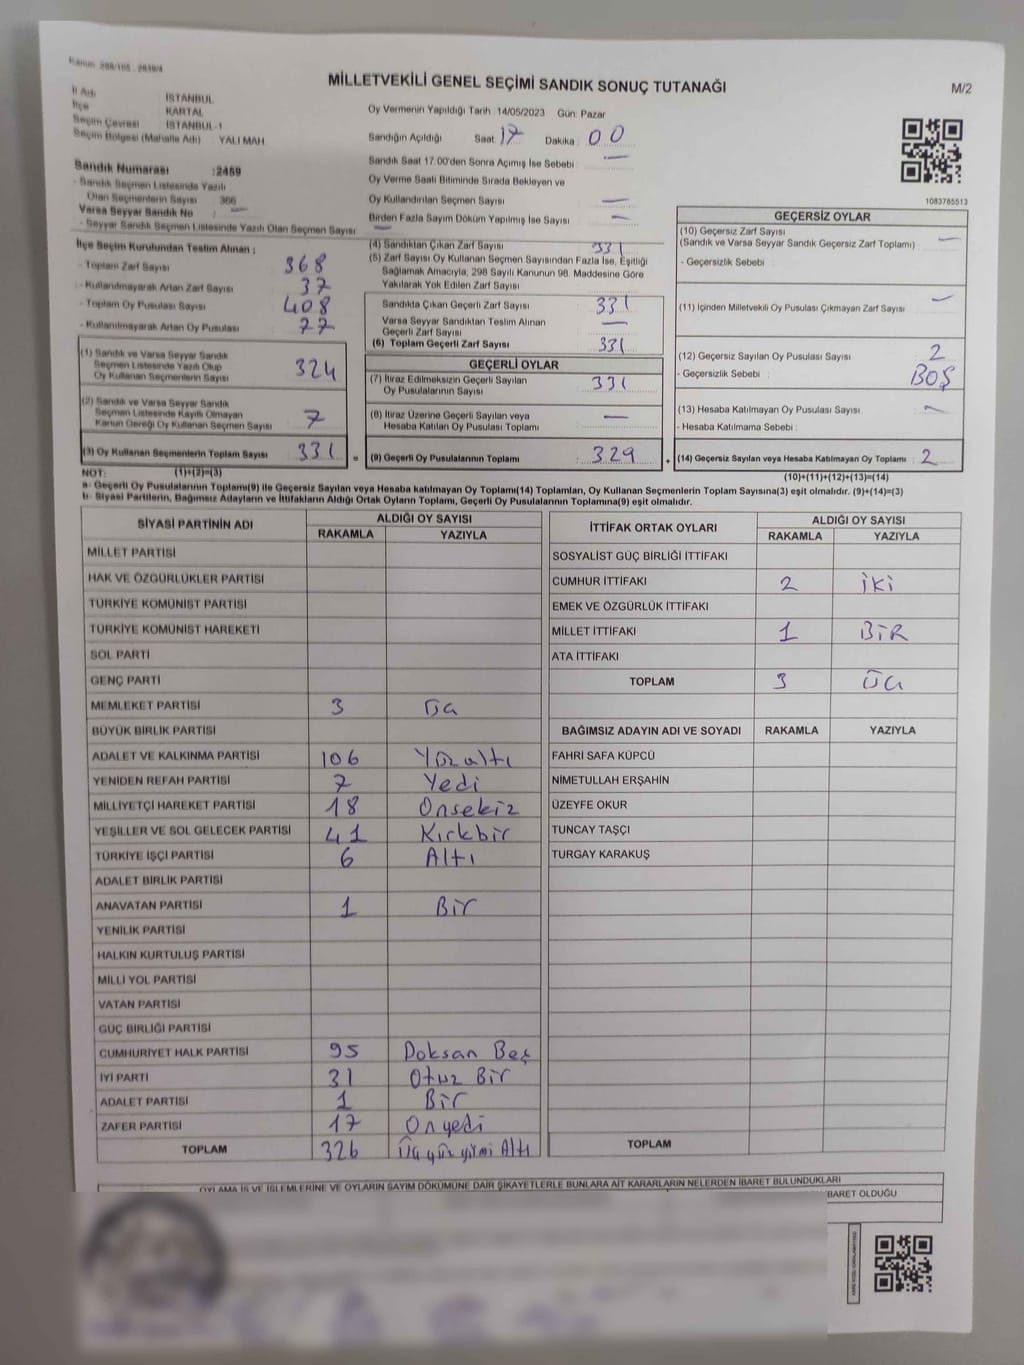 Kanun: 298/105 - 2839/4
MİLLETVEKİLİ GENEL SEÇİMİ SANDIK SONUÇ TUTANAĞI
M/2
İl Adı İSTANBUL
İlçe KARTAL
Seçim Çevresi İSTANBUL-1
Seçim Bölgesi (Mahalle Adı) : YALI MAH
Oy Vermenin Yapıldığı Tarih 14/05/2023 Gün: Pazar
Sandığın Açıldığı Saat 17 Dakika : 00
Sandık Saat 17:00'den Sonra Açımış İse Sebebi —
Oy Verme Saati Bitiminde Sırada Bekleyen ve
Oy Kullandırılan Seçmen Sayısı —
Birden Fazla Sayım Döküm Yapılmış İse Sayısı —
1083765513
Sandık Numarası :2459
- Sandık Seçmen Listesinde Yazılı
Olan Seçmenlerin Sayısı 366
Varsa Seyyar Sandık No —
- Seyyar Sandık Seçmen Listesinde Yazılı Olan Seçmen Sayısı —
İlçe Seçim Kurulundan Teslim Alınan ;
- Toplam Zarf Sayısı 368
- Kullanılmayarak Artan Zarf Sayısı 37
- Toplam Oy Pusulası Sayısı 408
- Kullanılmayarak Artan Oy Pusulası 77
(1) Sandık ve Varsa Seyyar Sandık
Seçmen Listesinde Yazılı Olup
Oy Kullanan Seçmenlerin Sayısı 324
(2) Sandık ve Varsa Seyyar Sandık
Seçmen Listesinde Kayıtlı Olmayan
Kanun Gereği Oy Kullanan Seçmen Sayısı 7
(3) Oy Kullanan Seçmenlerin Toplam Sayısı 331 =
(4) Sandıktan Çıkan Zarf Sayısı 331
(5) Zarf Sayısı Oy Kullanan Seçmen Sayısından Fazla İse, Eşitliği
Sağlamak Amacıyla, 298 Sayılı Kanunun 98. Maddesine Göre
Yakılarak Yok Edilen Zarf Sayısı
Sandıkta Çıkan Geçerli Zarf Sayısı 331
Varsa Seyyar Sandıktan Teslim Alınan
Geçerli Zarf Sayısı —
(6) Toplam Geçerli Zarf Sayısı 331
GEÇERLİ OYLAR
(7) İtiraz Edilmeksizin Geçerli Sayılan
Oy Pusulalarının Sayısı 331
(8) İtiraz Üzerine Geçerli Sayılan veya
Hesaba Katılan Oy Pusulası Toplamı —
(9) Geçerli Oy Pusulalarının Toplamı 329 +
GEÇERSİZ OYLAR
(10) Geçersiz Zarf Sayısı
(Sandık ve Varsa Seyyar Sandık Geçersiz Zarf Toplamı) —
- Geçersizlik Sebebi
(11) İçinden Milletvekili Oy Pusulası Çıkmayan Zarf Sayısı —
(12) Geçersiz Sayılan Oy Pusulası Sayısı 2
- Geçersizlik Sebebi : BOŞ
(13) Hesaba Katılmayan Oy Pusulası Sayısı —
- Hesaba Katılmama Sebebi :
(14) Geçersiz Sayılan veya Hesaba Katılmayan Oy Toplamı : 2
NOT: (1)+(2)=(3)
(10)+(11)+(12)+(13)=(14)
a- Geçerli Oy Pusulalarının Toplamı(9) ile Geçersiz Sayılan veya Hesaba katılmayan Oy Toplamı(14) Toplamları, Oy Kullanan Seçmenlerin Toplam Sayısına(3) eşit olmalıdır. (9)+(14)=(3)
b- Siyasi Partilerin, Bağımsız Adayların ve İttifakların Aldığı Ortak Oyların Toplamı, Geçerli Oy Pusulalarının Toplamına(9) eşit olmalıdır.
SİYASİ PARTİNİN ADI ALDIĞI OY SAYISI
RAKAMLA YAZIYLA
MİLLET PARTİSİ
HAK VE ÖZGÜRLÜKLER PARTİSİ
TÜRKİYE KOMÜNİST PARTİSİ
TÜRKİYE KOMÜNİST HAREKETİ
SOL PARTİ
GENÇ PARTİ
MEMLEKET PARTİSİ 3 Üç
BÜYÜK BİRLİK PARTİSİ
ADALET VE KALKINMA PARTİSİ 106 Yüzaltı
YENİDEN REFAH PARTİSİ 7 Yedi
MİLLİYETÇİ HAREKET PARTİSİ 18 Onsekiz
YEŞİLLER VE SOL GELECEK PARTİSİ 41 Kırkbir
TÜRKİYE İŞÇİ PARTİSİ 6 Altı
ADALET BİRLİK PARTİSİ
ANAVATAN PARTİSİ 1 Bir
YENİLİK PARTİSİ
HALKIN KURTULUŞ PARTİSİ
MİLLİ YOL PARTİSİ
VATAN PARTİSİ
GÜÇ BİRLİĞİ PARTİSİ
CUMHURİYET HALK PARTİSİ 95 Doksan Beş
İYİ PARTİ 31 Otuz Bir
ADALET PARTİSİ 1 Bir
ZAFER PARTİSİ 17 Onyedi
TOPLAM 326 Üçyüzyirmi Altı
İTTİFAK ORTAK OYLARI ALDIĞI OY SAYISI
RAKAMLA YAZIYLA
SOSYALİST GÜÇ BİRLİĞİ İTTİFAKI
CUMHUR İTTİFAKI 2 İKİ
EMEK VE ÖZGÜRLÜK İTTİFAKI
MİLLET İTTİFAKI 1 BİR
ATA İTTİFAKI
TOPLAM 3 ÜÇ
BAĞIMSIZ ADAYIN ADI VE SOYADI RAKAMLA YAZIYLA
FAHRİ SAFA KÜPCÜ
NİMETULLAH ERŞAHİN
ÜZEYFE OKUR
TUNCAY TAŞÇI
TURGAY KARAKUŞ
TOPLAM
OYLAMA İŞ VE İŞLEMLERİNE VE OYLARIN SAYIM DÖKÜMÜNE DAİR ŞİKAYETLERLE BUNLARA AİT KARARLARIN NELERDEN İBARET BULUNDUKLARI
İBARET OLDUĞU